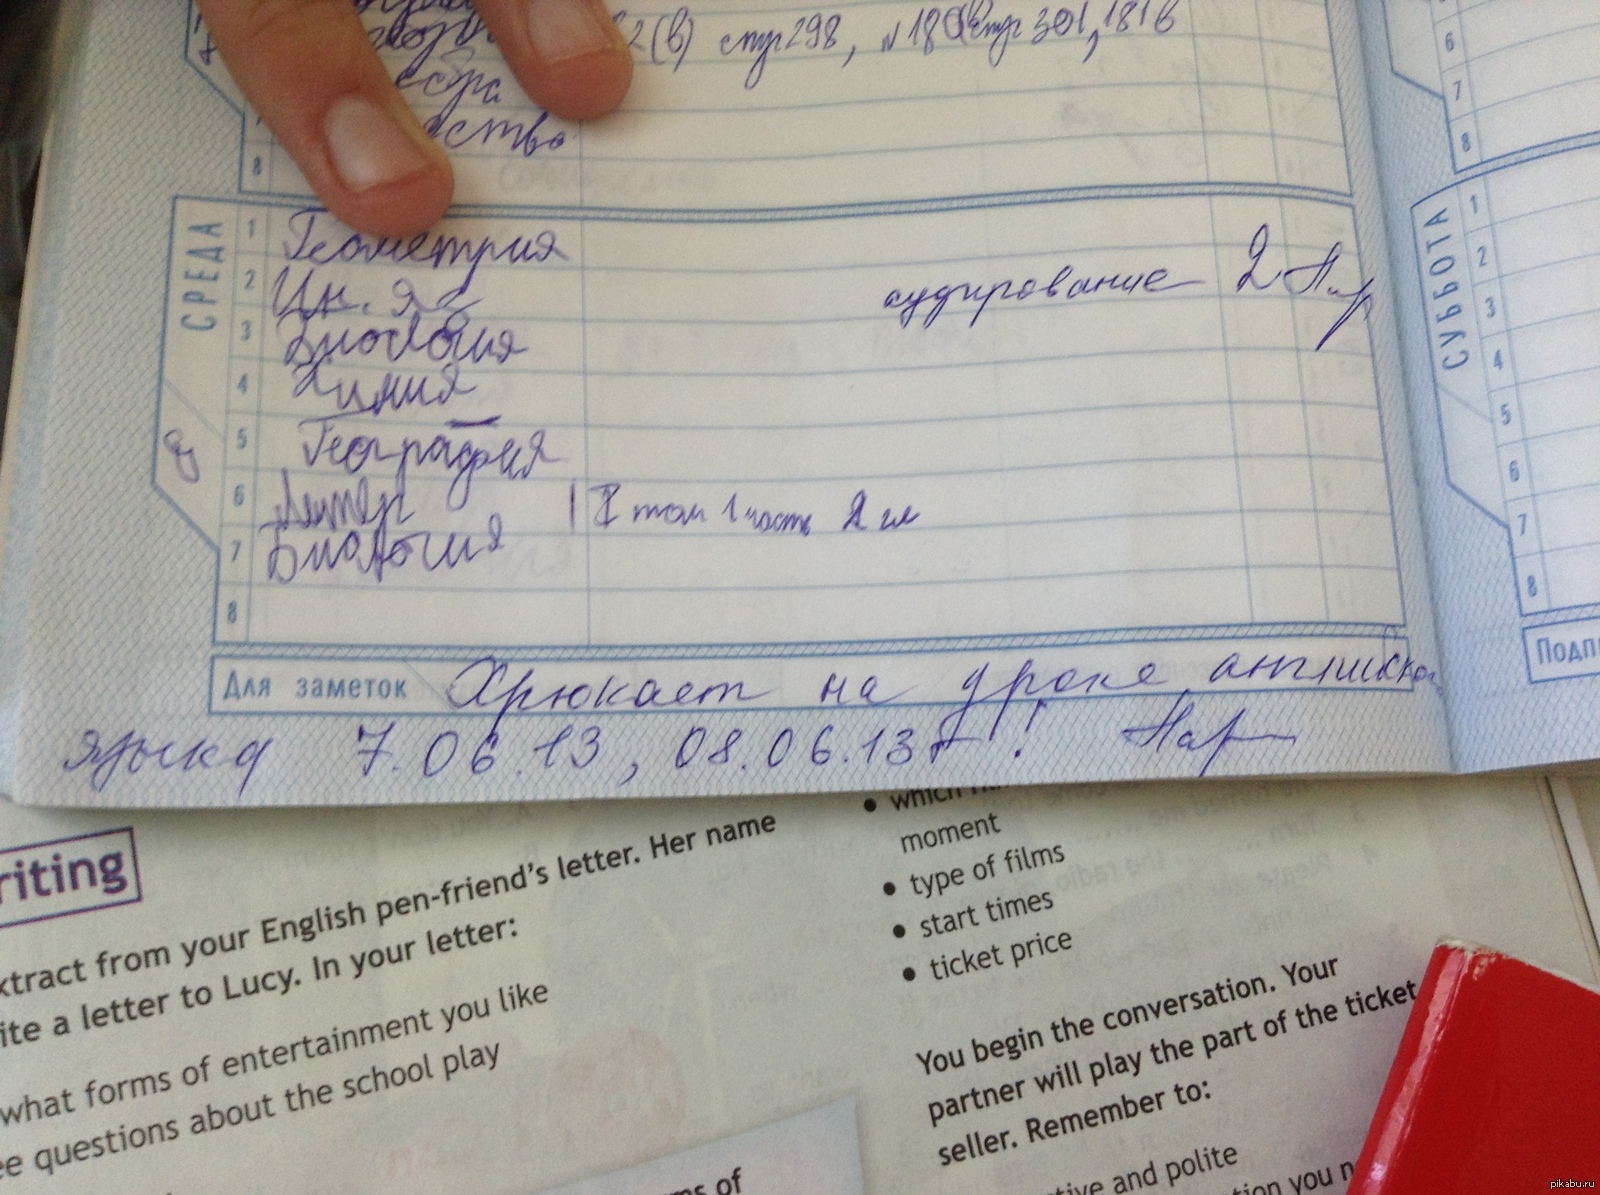 2(в) стр 298, №180 стр 301, 181в
8
СРЕДА
1 Геометрия
2 Ин. яз аудирование 2 Нар
3 Биология
4 Химия
5 География
6 Литер II том 1 часть 2 гл
7 Биология
8
Для заметок Хрюкает на уроке английского
языка 7.06.13, 08.06.13г! Нар
6
7
8
СУББОТА
1
2
3
4
5
6
7
8
Подп
riting
xtract from your English pen-friend's letter. Her name
ite a letter to Lucy. In your letter:
what forms of entertainment you like
ee questions about the school play
• which
moment
• type of films
• start times
• ticket price
You begin the conversation. Your
partner will play the part of the ticket
seller. Remember to:
tive and polite
tion you n
ms of
pikabu.ru